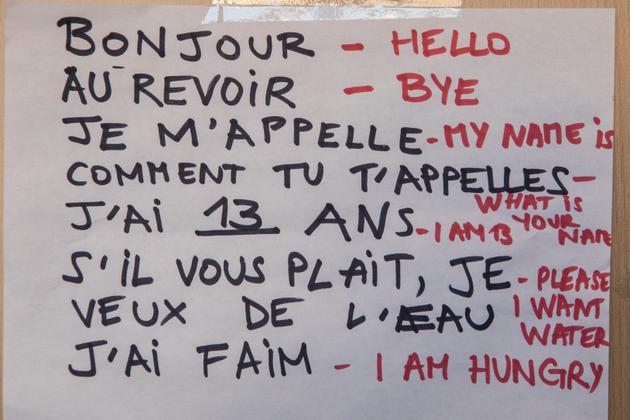 BONJOUR - HELLO
AU REVOIR - BYE
JE M'APPELLE - MY NAME iS
COMMENT TU T'APPELLES -
WHAT iS YOUR NAME
J'Ai 13 ANS - I AM 13
S'iL VOUS PLAiT, JE - PLEASE
VEUX DE L'EAU I WANT
WATER
J'Ai FAiM - I AM HUNGRY